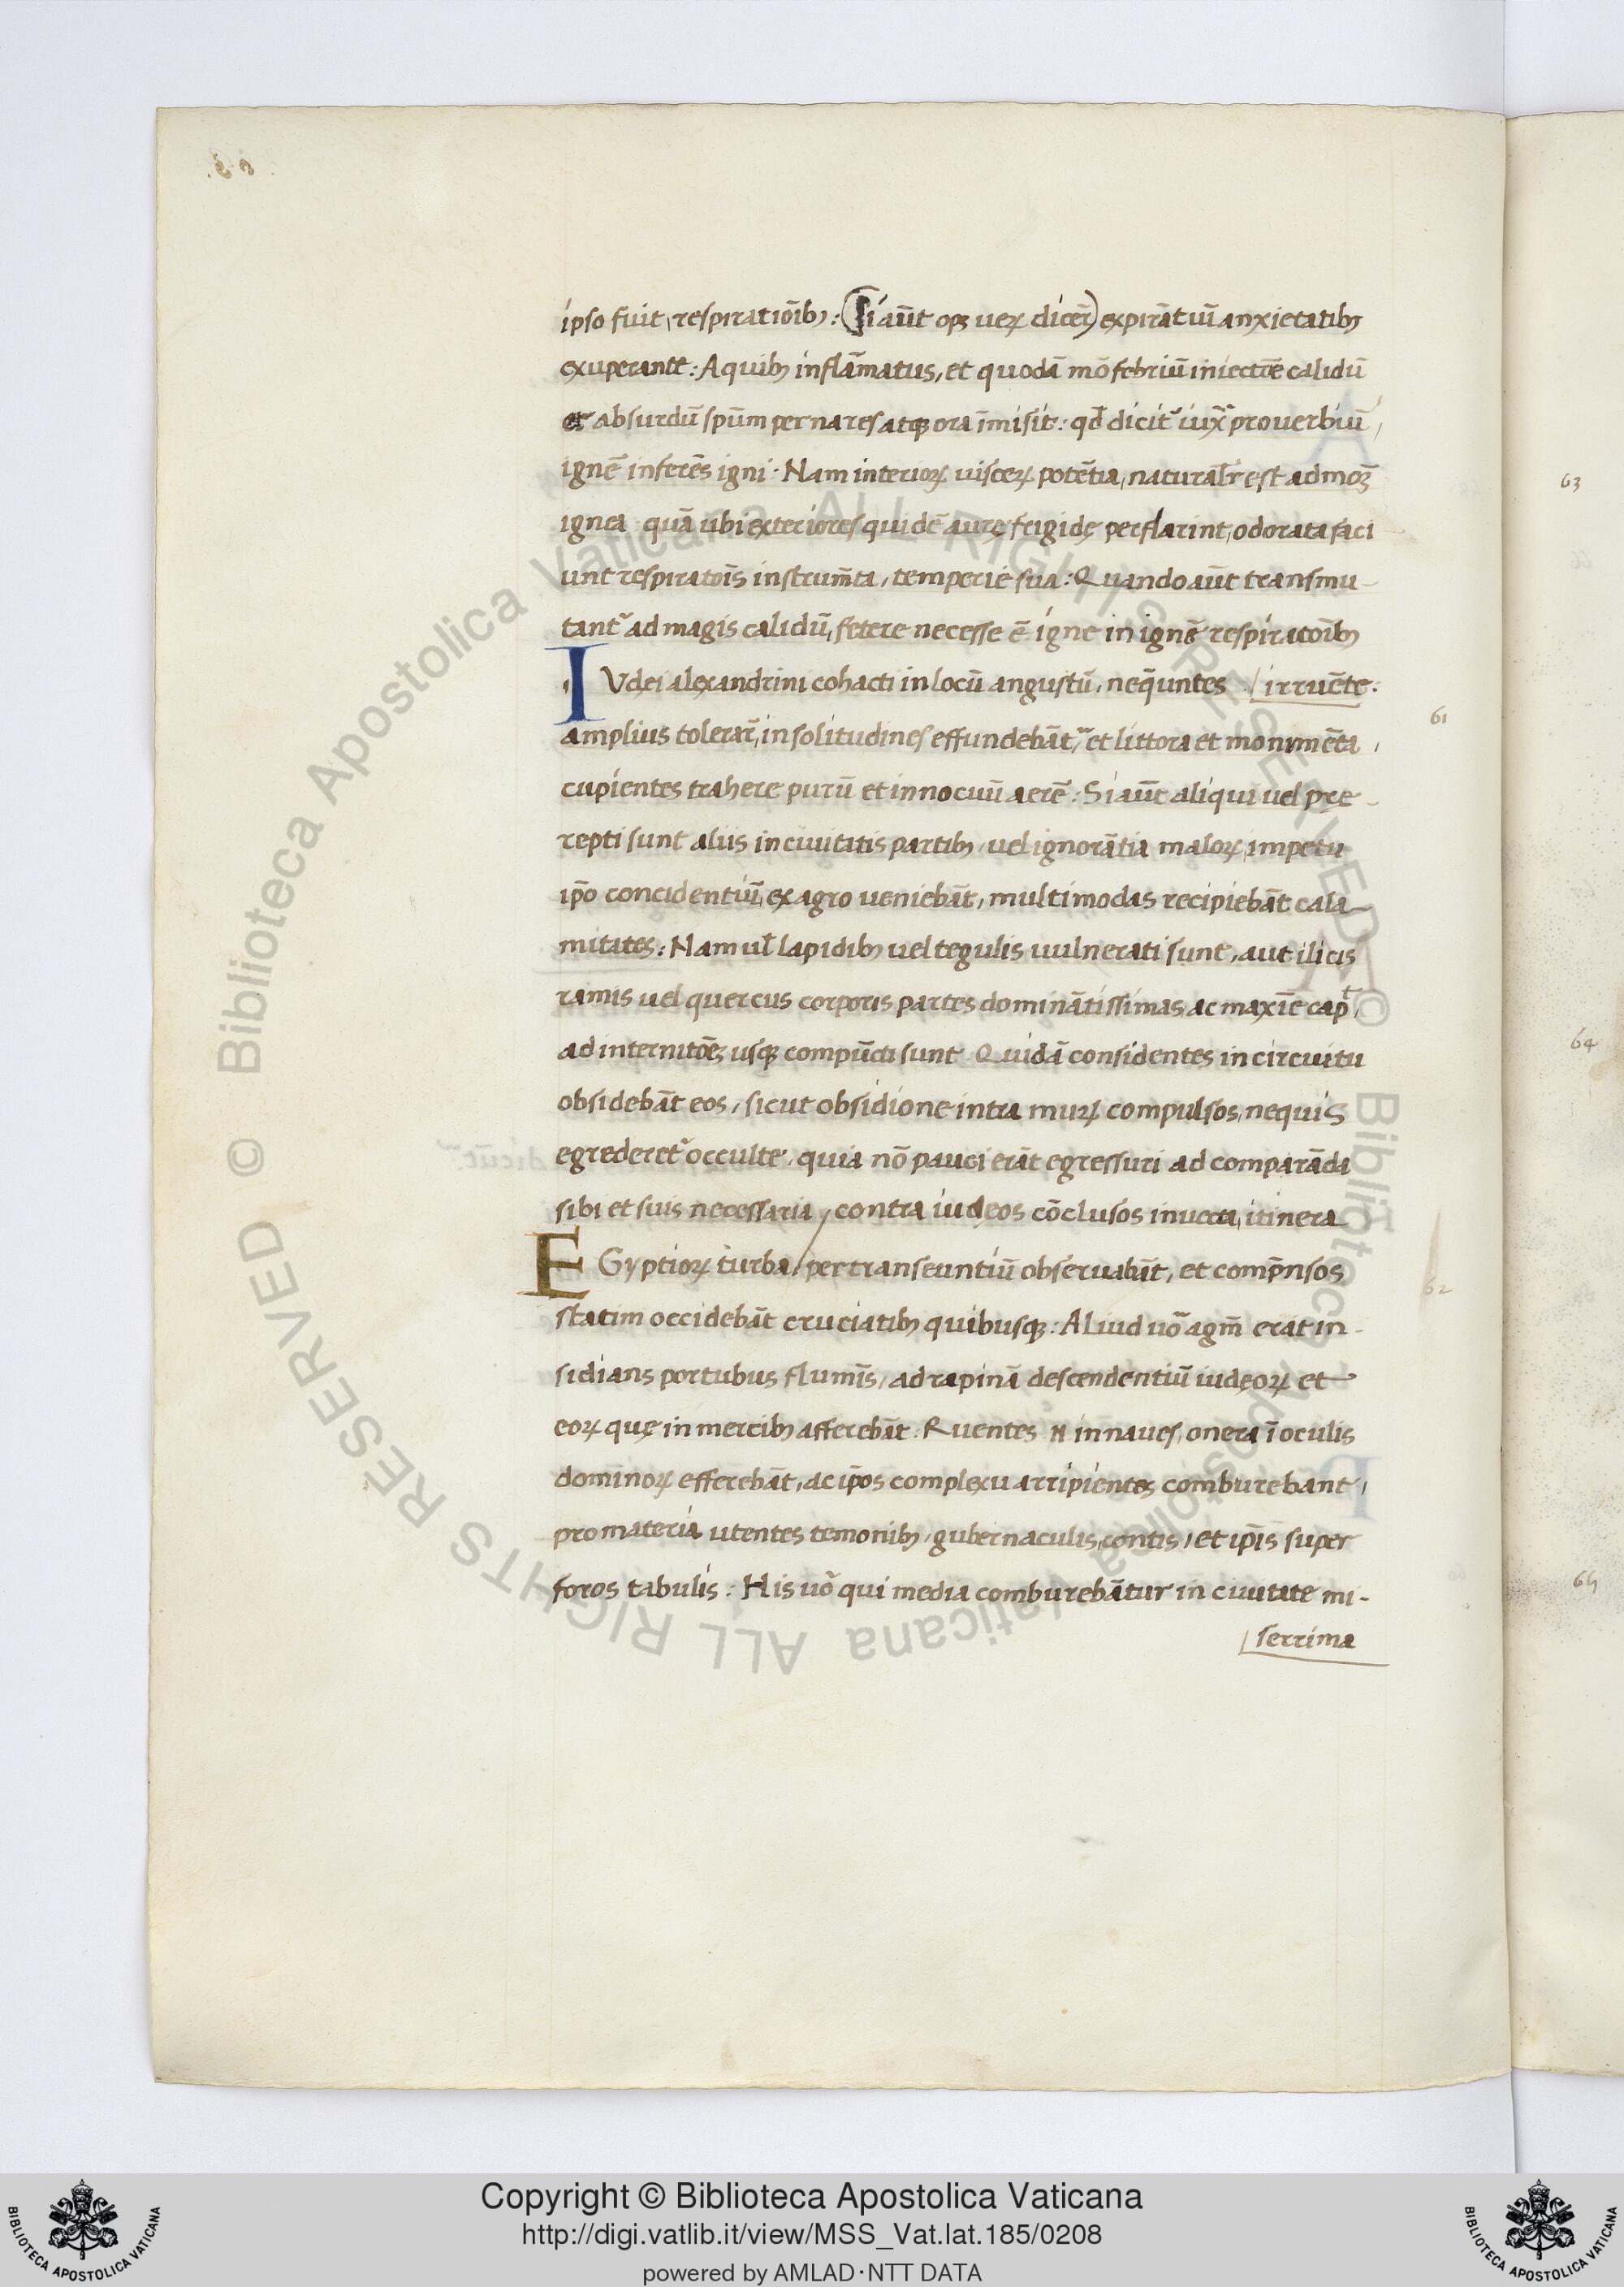 ipso fuit, respiratiōib⁊: (Si aūt opꝫ ueꝝ dicer̄) expirātiū anxietatib⁊
exuperante: A quib⁊ inflāmatus, et quodā mō febriū iniectōe calidū
et absurdū spūm per nares atqꝫ ora īmisit: qđ dicit᷑ iuxᵃ prouerbiū,
ignē inferēs igni. Nam interioꝝ uisceꝝ potētia, natural̄r est admoꝫ
ignea quā ubi exteriores quidē aurę frigidę perflarint, odorata faci
unt respiratōis instrum̄ta, temperie sua: Quando aūt transmu-
tant᷑ ad magis calidū, fetere necesse ē igne in ignē respiratōib⁊
irruēte:
IVdęi alexandrini cohacti in locū angustū, neq̄untes
amplius tolerar̄, in solitudines effundebāt᷑, et littora et monumēta,
cupientes trahere purū et innocuū aerē: Si aūt aliqui uel pre-
repti sunt aliis in ciuitatis partib⁊, uel ignorātia maloꝝ, impetu
ip̄o concidentiū, ex agro ueniebāt, multimodas recipiebāt cala-
mitates: Nam ul̄ lapidib⁊ uel tegulis uulnerati sunt, aut ilicis
ramis uel quercus corporis partes dominātissimas, ac maxīe capᵗ,
ad internitōeꝫ usqꝫ compūcti sunt Quidā considentes in circuitu
obsidebāt eos, sicut obsidione intra muꝝ compulsos, nequis
egrederet᷑ occulte, quia nō pauci erāt egressuri ad comparāda
sibi et suis necessaria, contra iudęos cōclusos inuecta, itinera
EGyptioꝝ turba, per transeuntiū obseruabāt, et comp̄nsos
statim occidebāt cruciatib⁊ quibusqꝫ: Aliud uō agm̄ erat in-
sidians portubus flumīs, ad rapinā descendentiū iudęoꝝ et
eoꝝ quę in mercib⁊ afferebāt. Ruentes n in naues, onera ī oculis
dominoꝝ efferebāt, ac ip̄os complexu arripientes comburebant,
pro materia utentes temonib⁊, gubernaculis, contis, et ip̄is super
foros tabulis: His uō qui media comburebātur in ciuitate mi-
serrima
61
62
63
64
65
Biblioteca Apostolica Vaticana ALL RIGHTS RESERVED ©
Biblioteca Apostolica Vaticana ALL RIGHTS RESERVED ©
Copyright © Biblioteca Apostolica Vaticana
http://digi.vatlib.it/view/MSS_Vat.lat.185/0208
powered by AMLAD·NTT DATA
BIBLIOTECA APOSTOLICA VATICANA
BIBLIOTECA APOSTOLICA VATICANA